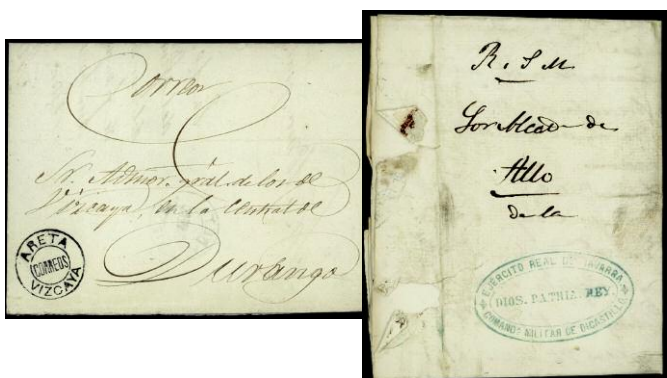 Correo
Sr. Admor. gral. de los de
Vizcaya, en la Central de
Durango
ARETA
CORREOS
VIZCAYA
R. S. M.
Sor Alcde de
Allo
de la
EJERCITO REAL DE NAVARRA
DIOS. PATRIA. REY.
COMANDA MILITAR DE DICASTILLO